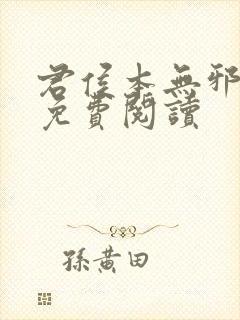 君侯本無邪
免費閱讀
孫黃田